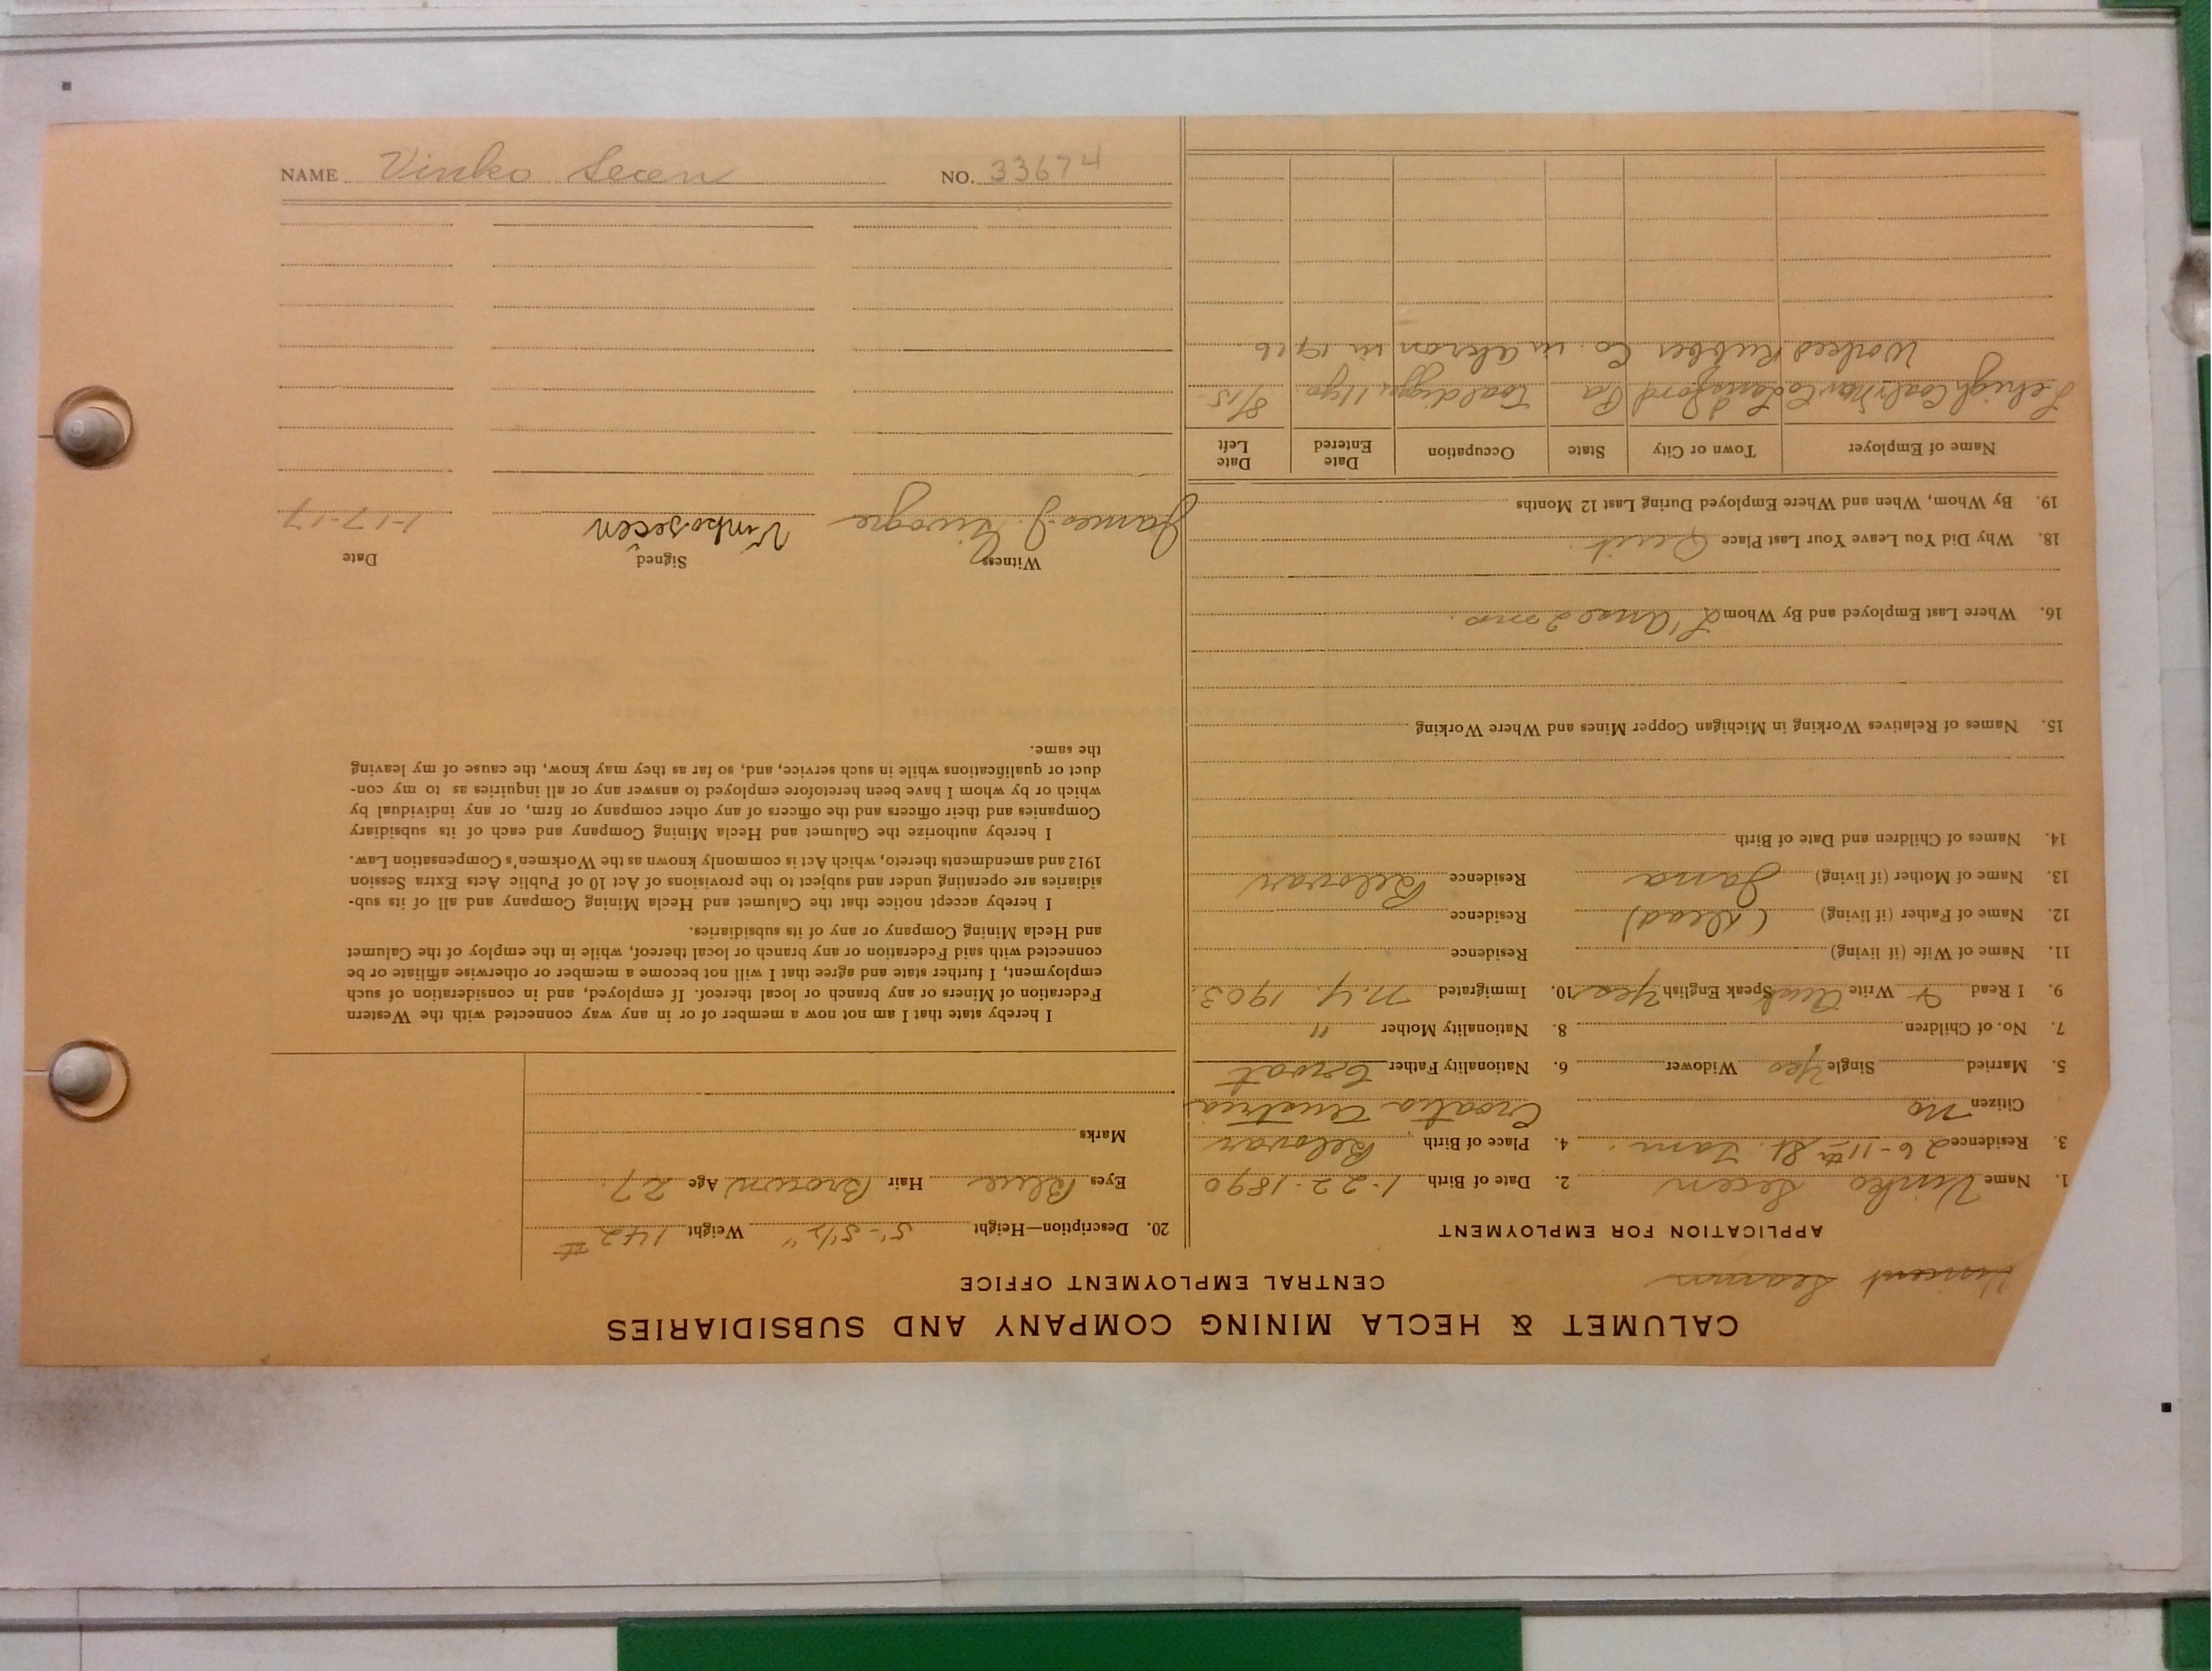 CALUMET & HECLA MINING COMPANY AND SUBSIDIARIES
CENTRAL EMPLOYMENT OFFICE
Vincent
APPLICATION FOR EMPLOYMENT
1. Name Vinko Secen 2. Date of Birth 1-22-1890
3. Residence 26-11th St. Tam. 4. Place of Birth Belovar
Citizen no Croatia Austria
5. Married Single Yes Widower 6. Nationality Father Croat
7. No. of Children 8. Nationality Mother "
9. I Read & Write Aust Speak English Yes 10. Immigrated N.Y. 1903.
11. Name of Wife (if living) Residence
12. Name of Father (if living) (Dead) Residence
13. Name of Mother (if living) Jana Residence Belovar
14. Names of Children and Date of Birth
15. Names of Relatives Working in Michigan Copper Mines and Where Working
16. Where Last Employed and By Whom L'Anse 2 mos.
18. Why Did You Leave Your Last Place Quit.
19. By Whom, When and Where Employed During Last 12 Months
Name of Employer Town or City State Occupation Date Entered Date Left
Lehigh Coal & Nav Co Lansford Pa Coal digger 11 yrs. 8/15.
Worked Rubber Co. in Akron in 1916.
20. Description—Height 5'-5½" Weight 142#
Eyes Blue Hair Brown Age 27.
Marks
I hereby state that I am not now a member of or in any way connected with the Western
Federation of Miners or any branch or local thereof. If employed, and in consideration of such
employment, I further state and agree that I will not become a member or otherwise affiliate or be
connected with said Federation or any branch or local thereof, while in the employ of the Calumet
and Hecla Mining Company or any of its subsidiaries.
I hereby accept notice that the Calumet and Hecla Mining Company and all of its sub-
sidiaries are operating under and subject to the provisions of Act 10 of Public Acts Extra Session
1912 and amendments thereto, which Act is commonly known as the Workmen's Compensation Law.
I hereby authorize the Calumet and Hecla Mining Company and each of its subsidiary
Companies and their officers and the officers of any other company or firm, or any individual by
which or by whom I have been heretofore employed to answer any or all inquiries as to my con-
duct or qualifications while in such service, and, so far as they may know, the cause of my leaving
the same.
Witness Signed Date
James J. Vinko secen 1-17-17
NAME Vinko Secen NO. 33674